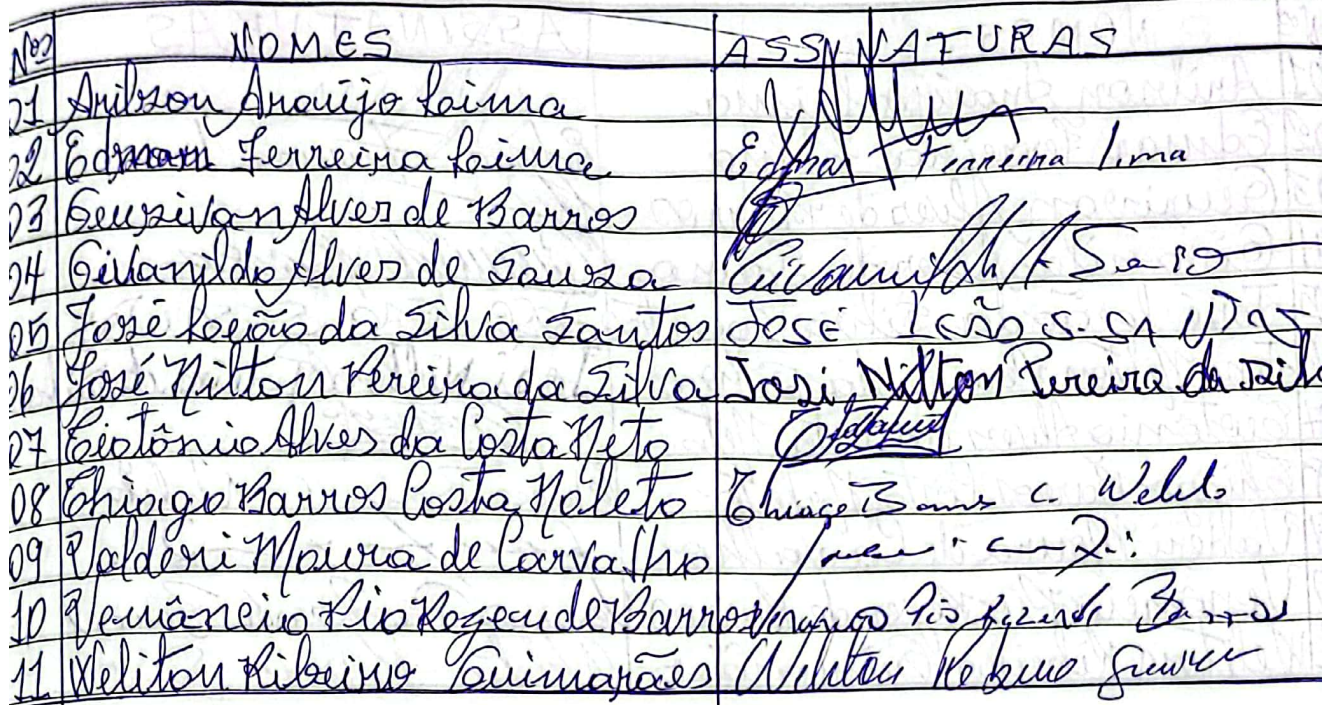 Nos NOMES ASSNNATURAS
01 Arilson Araújo Loima
02 Edmam Ferreira Loima Edmar Ferreira lima
03 Geusivan Alves de Barros
04 Givanildo Alves de Souza
05 José Loeão da Silva Santos JOSÉ lEÃO S. SANTOS
06 José Nilton Pereira da Silva José Nilton Pereira da Silv
07 Teotônio Alves da Costa Neto
08 Thiago Barros Costa Noleto Thiago Barros C. Noleto
09 Valderi Moura de Carvalho
10 Venâncio Pio Rezende Barros Venancio Pio Rezende Barros
11 Weliton Ribeiro Guimarães Weliton Ribeiro